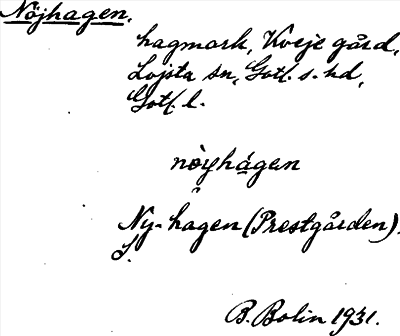 Nöjhagen.
hagmark, Kveje gård,
Lojsta sn, Gotl. s. hd,
Gotl. l.
nòyhágen
Ny-hagen (Prestgården).
S.
B. Bolin 1931.